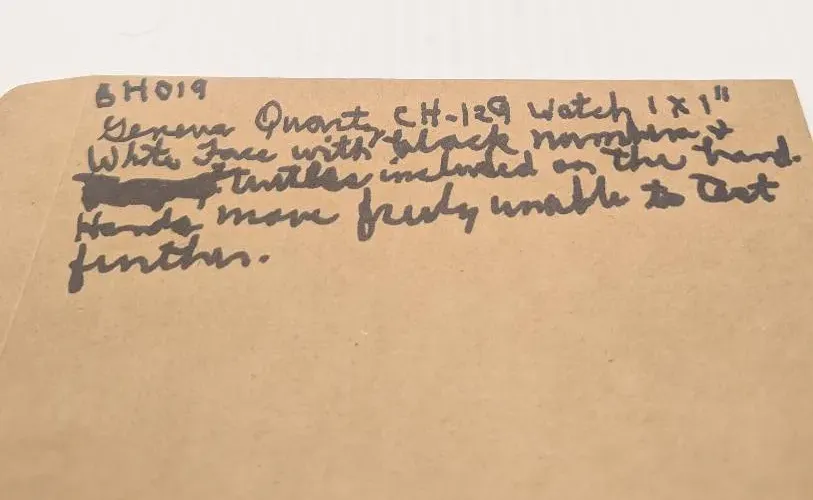 BH019
Geneva Quartz CH-129 Watch 1 X 1"
White Face with black numbers +
turtles included on the band.
Hands move freely unable to test
further.